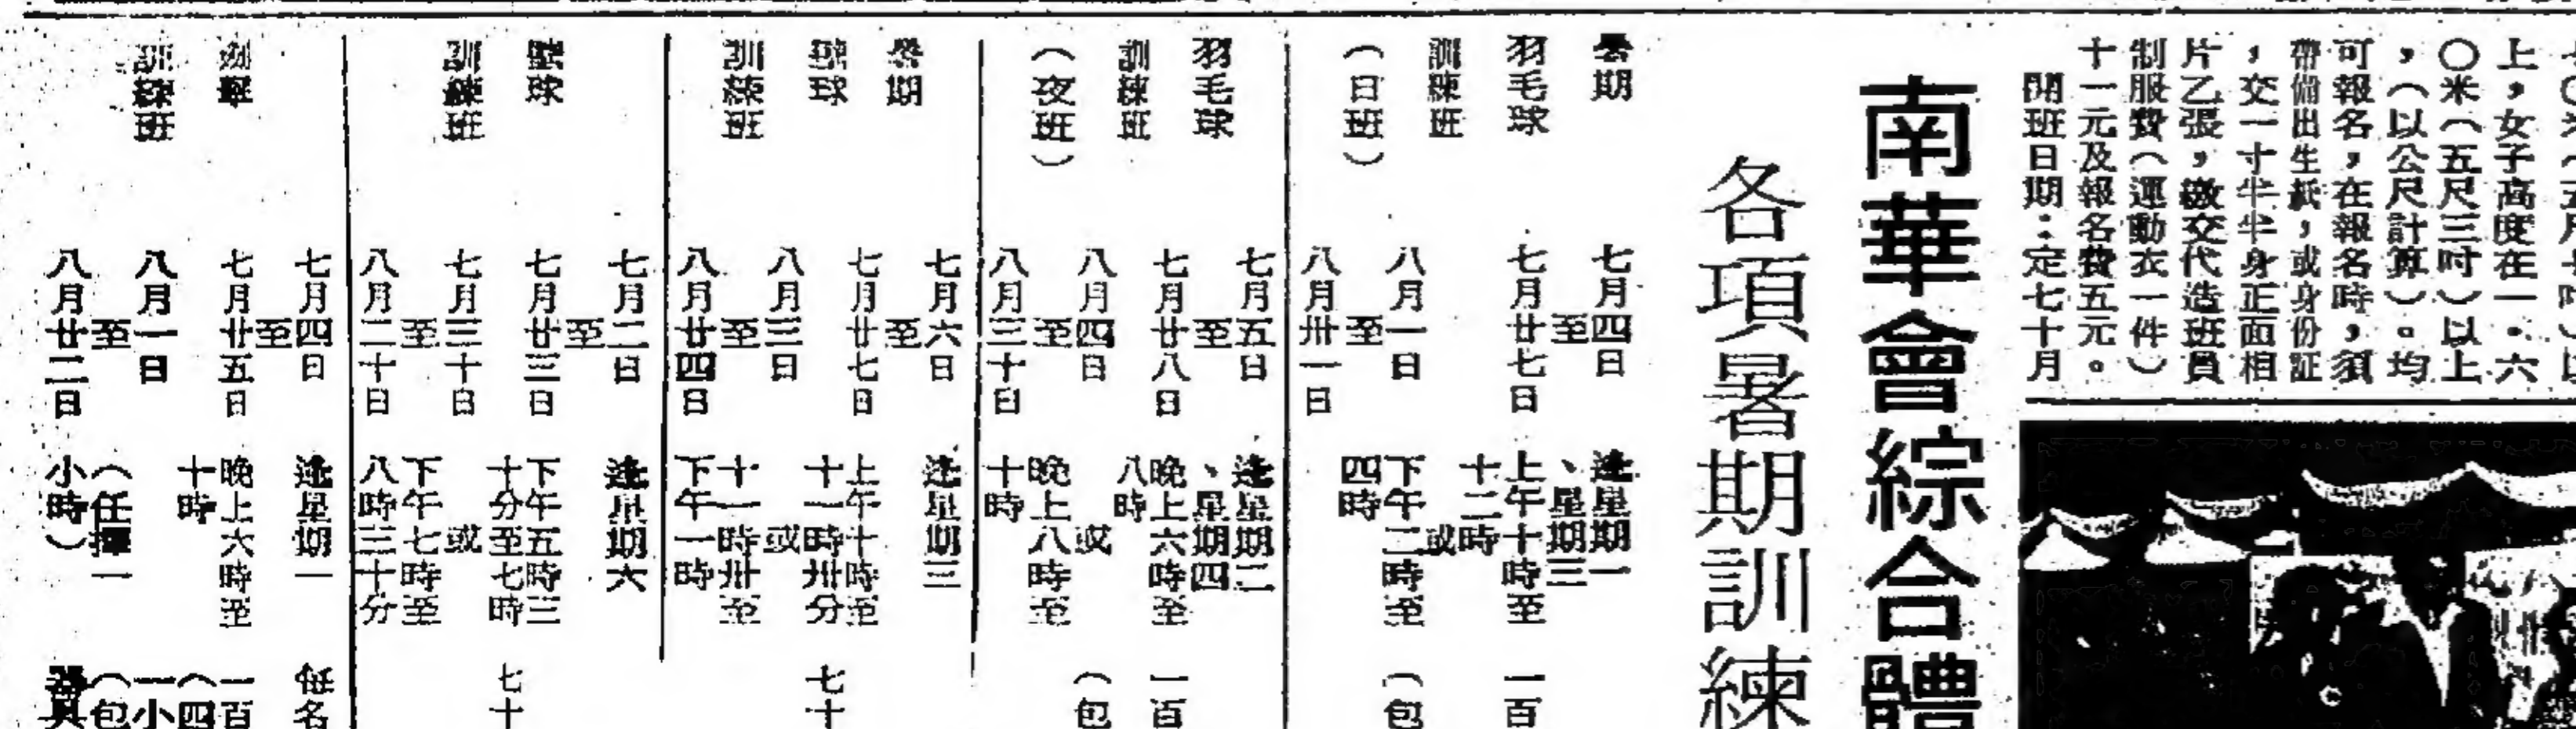 上，女子高度在一·六
〇米（五尺三吋）以上
，（以公尺計算）。均
可報名，在報名時，須
帶備出生紙，或身份証
，交一寸半半身正面相
片乙張，繳交代造班員
制服費（運動衣一件）
十一元及報名費五元。
開班日期：定七十月
南華會綜合體
各項暑期訓練
暑期
羽毛球
訓練班
（日班）
七月四日
至
七月廿七日
八月一日
至
八月卅一日
逢星期一
、星期三
上午十時至
十二時
或
下午二時至
四時
一百
（包
羽毛球
訓練班
（夜班）
七月五日
至
七月廿八日
八月四日
至
八月三十日
逢星期二
、星期四
晚上六時至
八時
或
晚上八時至
十時
一百
（包
暑期
壁球
訓練班
七月六日
至
七月廿七日
八月三日
至
八月廿四日
逢星期三
上午十時至
十一時卅分
或
十一時卅至
下午一時
七十
壁球
訓練班
七月二日
至
七月廿三日
七月三十日
至
八月二十日
逢星期六
下午五時三
十分至七時
或
下午七時至
八時三十分
七十
訓練班
七月四日
至
七月廿五日
八月一日
至
八月廿二日
逢星期一
晚上六時至
十時
（任擇一
小時）
每名
一百
（四
一小
（包